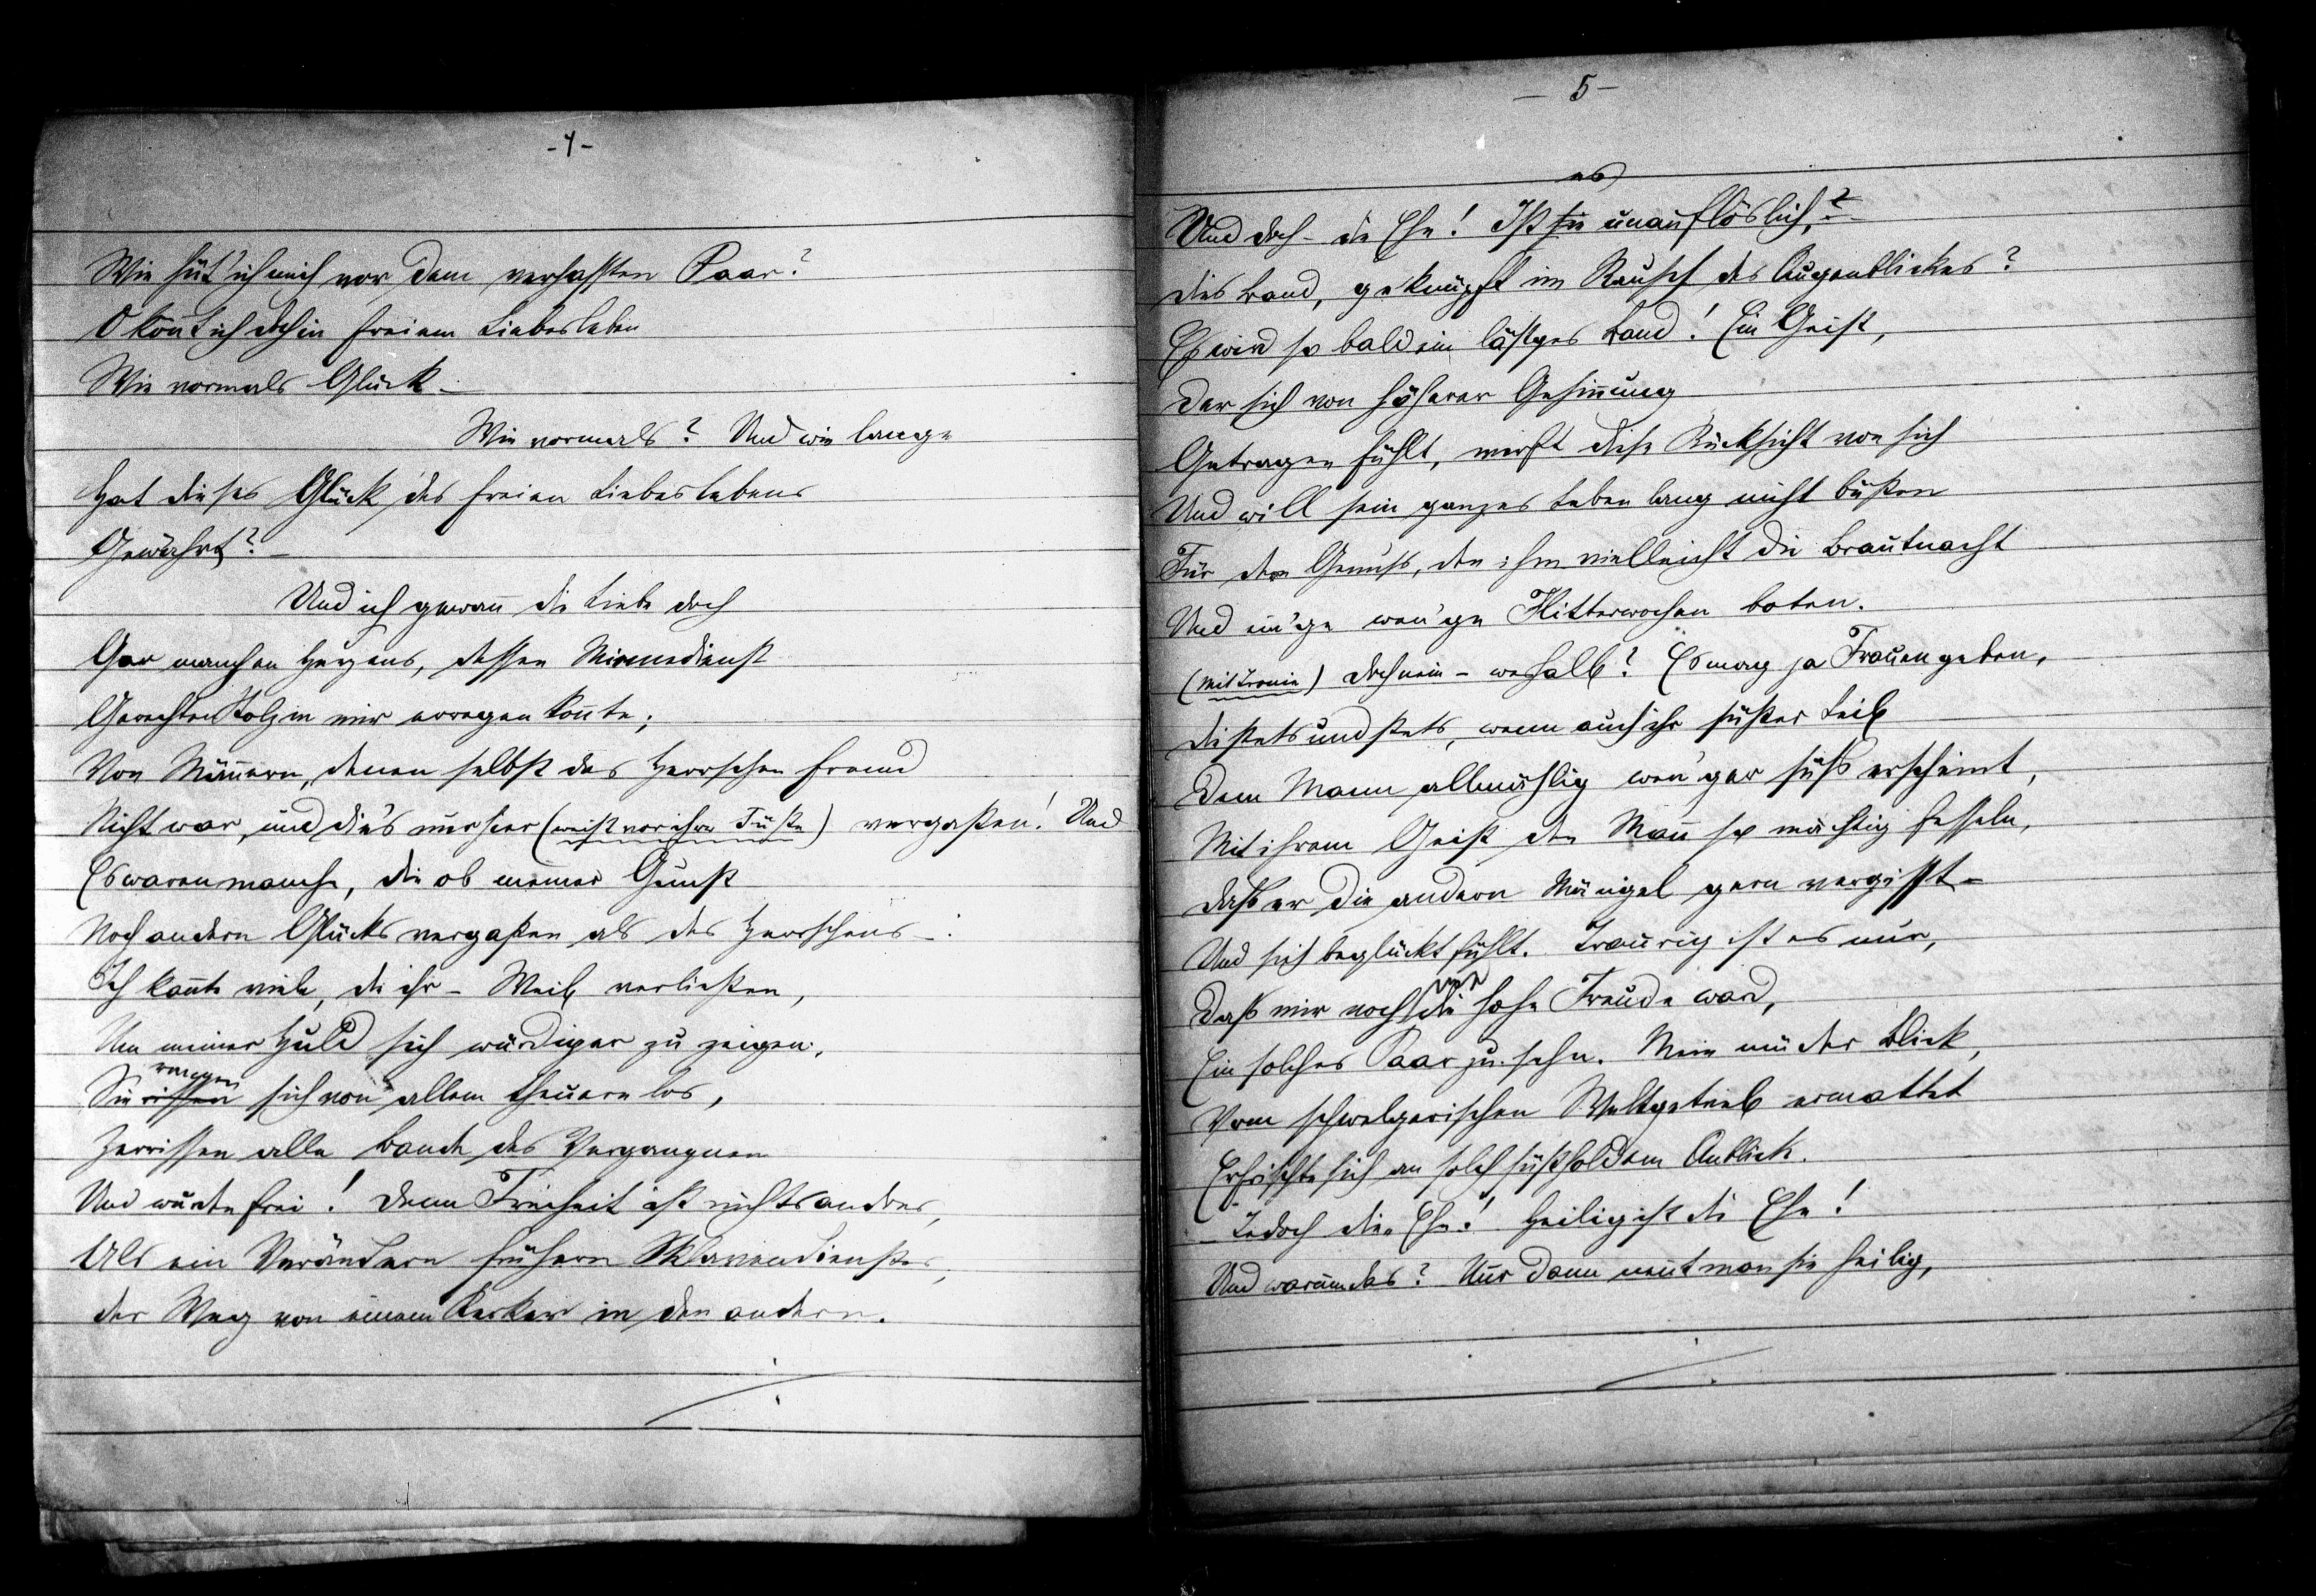 -4-
Wie hüt' ich mich vor dem verhassten Paar?
O könnt ich doch in freiem Liebesleben
Wie vormals Glück –
Wie vormals? Und wie lange
Hat dieses Glück des freien Liebeslebens
Gewährt? –
Und ich gewann die Liebe doch
Gar manchen Herzens, dessen Minnedienst
Gerechten Stolz in mir erregen konnte;
Von Männern, denen selbst das Herrschen fremd
Nicht war, und dies nur hier (weist vor ihre Füße) vergaßen! Und
Es waren manche, die ob meiner Gunst
Noch andern Glücks vergaßen als des Herrschens –.
Ich kannte viele, die ihr – Weib verließen,
Um meiner Huld sich würdiger zu zeigen.
rangen
Sie rissen sich von allem theuern los,
Zerrissen alle Bande des Vergangnen
Und wurden frei! Denn Freiheit ist nichts andres,
Als ein Verändern frühern Sklavendienstes,
der Weg von einem Kerker in den andern.
– 5 –
es
Und doch – die Ehe! Ist sie unauflöslich,?
dies Band, geknüpft im Rausch des Augenblickes?
Es wird so bald ein lästges Band! Ein Geist,
Der sich von höherer Gesinnung
Getragen fühlt, wirft diese Rücksicht von sich
Und will sein ganzes Leben lang nicht büßen
Für den Genuss, den ihm vielleicht die Brautnacht
Und ein'ge wen'ge Flitterwochen boten.
(mit Ironie) doch nein – weshalb? Es mag ja Frauen geben,
die stets und stets, wenn auch ihr süßer Leib
Dem Mann allmählig wen'ger süß erscheint,
Mit ihrem Geist den Mann so mächtig fesseln,
daß er die andern Mängel gern vergisst –
Und sich beglückt fühlt. Traurig ist es nur,
nie
Daß mir noch die hohe Freude ward,
Ein solches Paar zu sehn. Mein müder Blick,
Vom schwelgerischen Weltgetrieb ermattet
Erfrischte sich an solch süßholdem Anblick.
– Jedoch die Ehe! Heilig ist die Ehe!
Und warum das? Nur dann nennt man sie heilig,